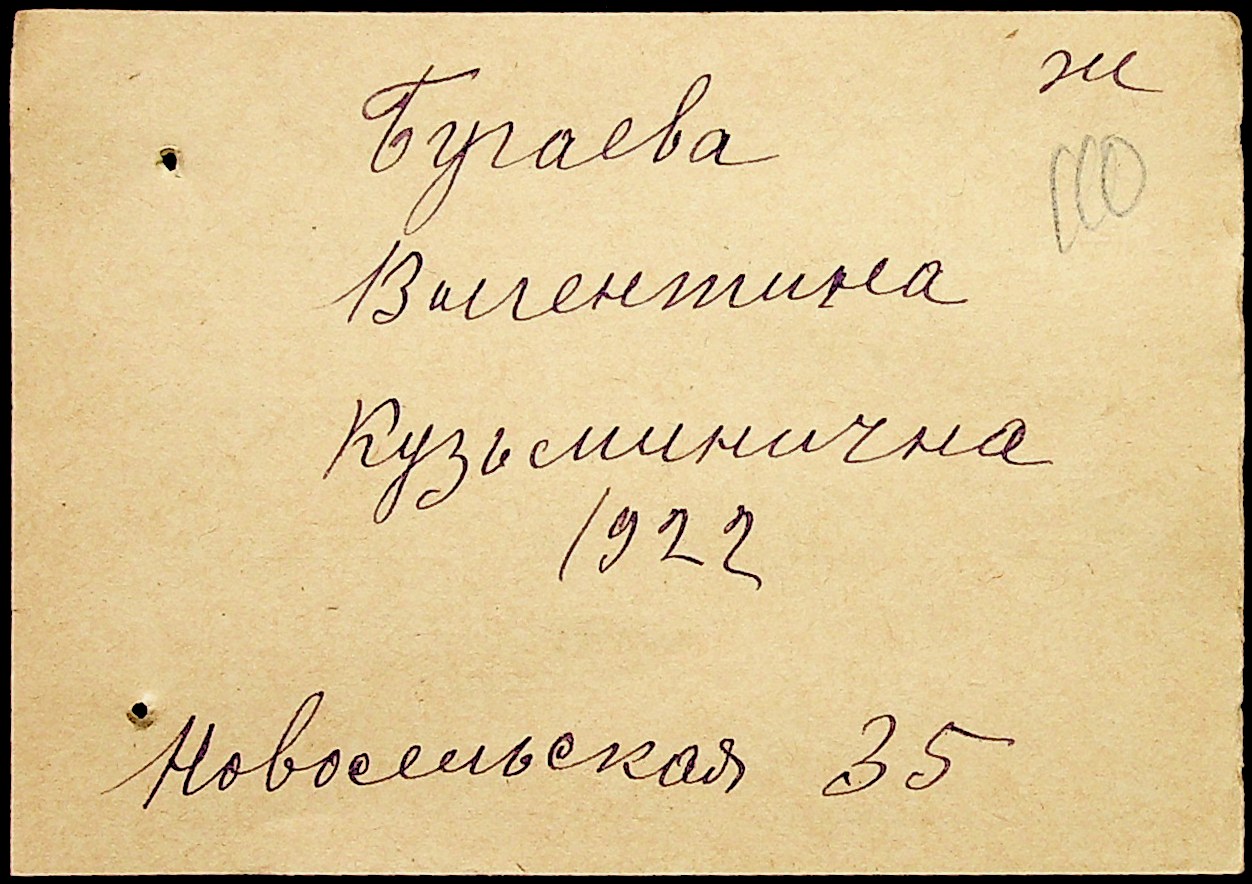 ж
Бугаева
Валентина
Кузьминична
1922
Новосельская 35